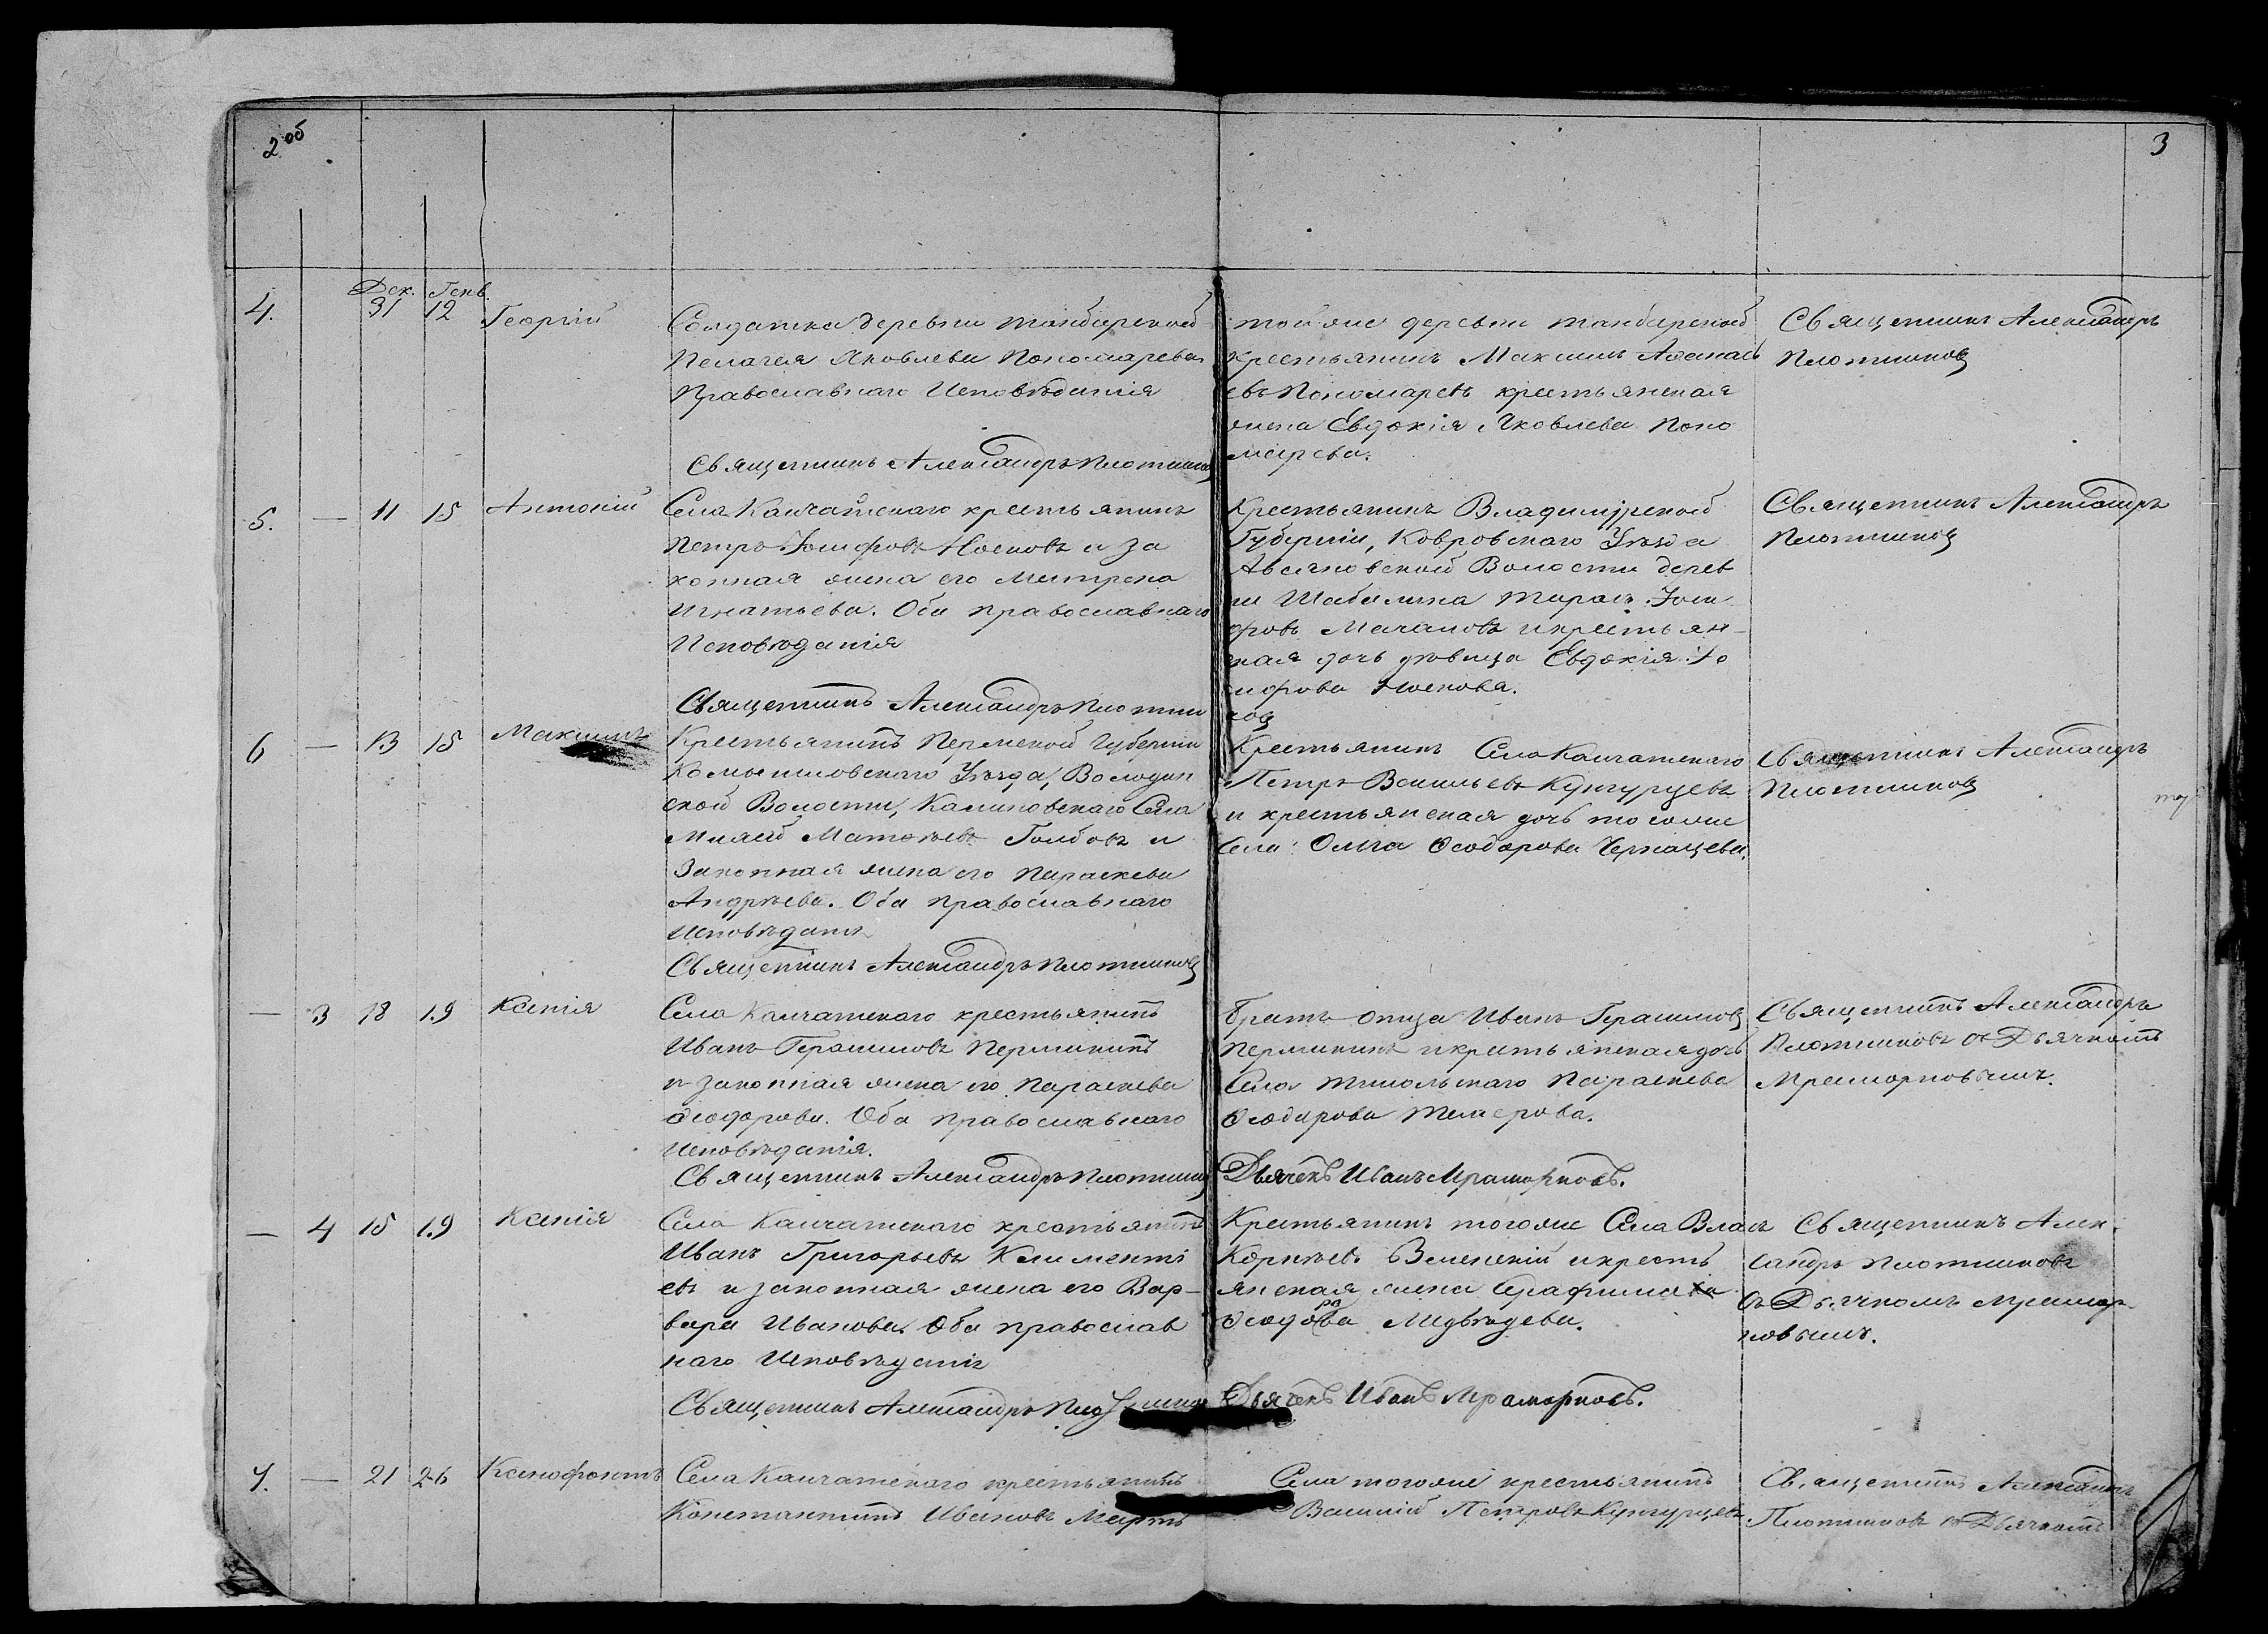 2 об
3
Дек. Генв.
4. 31 12 Георгій
Солдатка деревни
Пелагея Яковлева Пономарева
Православнаго Исповѣданія
Священникъ Александръ Плотников
той же деревни
крестьянинъ Максимъ Афанась
евъ Пономаревъ крестьянская
жена Евдокія Яковлева Поно
марева.
Священникъ Александръ
Плотниковъ
5. — 11 15 Антоній
Села Камчатскаго крестьянинъ
Петръ Іосифовъ Носковъ и за
конная жена его Матрена
Игнатьева. Оба православнаго
Исповѣданія
Священникъ Александръ Плотни
ковъ
Крестьянинъ Владимірской
Губерніи, Ковровскаго Уѣзда
Волости дерев
ни Шабалина Тарасъ Іоси
фовъ и крестьян-
ская дочь дѣвица Евдокія Іо
сифова Носкова.
Священникъ Александръ
Плотниковъ
6 — 13 15 Максимъ
Крестьянинъ Пермской Губерніи
Камышловскаго Уѣзда, Володин
ской Волости, Калиновскаго Села
Матвѣевъ и
Законная жена его Параскева
Андрѣева. Оба православнаго
Исповѣданія
Священникъ Александръ Плотниковъ
Крестьянинъ Села Камчатскаго
Петръ Васильевъ Кунгурцевъ
и крестьянская дочь того же
Села Ольга Ѳеодорова
Священникъ Александръ
Плотниковъ
— 3 18 19 Ксенія
Села Камчатскаго крестьянинъ
Иванъ Герасимовъ Пермининъ
и законная жена его Параскева
Ѳеодорова. Оба православнаго
Исповѣданія.
Священникъ Александръ Плотников
Братъ отца Иванъ Герасимовъ
Пермининъ и крестьянская дочь
Села Параскева
Ѳеодорова
Дьячекъ Иванъ Мраморновъ.
Священникъ Александръ
Плотниковъ съ Дьячкомъ
Мраморновымъ.
— 4 15 19 Ксенія
Села Камчатскаго крестьянинъ
Иванъ Григорьевъ Климентъ
евъ и законная жена его Вар-
вара Иванова. Оба православ
наго Исповѣданія
Священникъ Александръ
Крестьянинъ того же Села Власъ
Корнѣевъ и кресть
янская жена Серафима
Ѳеодорова Медвѣдева.
Дьячекъ Иванъ Мраморновъ.
Священникъ Алек-
сандръ Плотниковъ
съ Дьячкомъ Мрамор-
новымъ.
7. — 21 26 Ксенофонтъ
Села Камчатскаго крестьянинъ
Константинъ Ивановъ
Села того же крестьянинъ
Василій Петровъ Кунгурцевъ
Священникъ Александръ
Плотниковъ съ Дьячкомъ